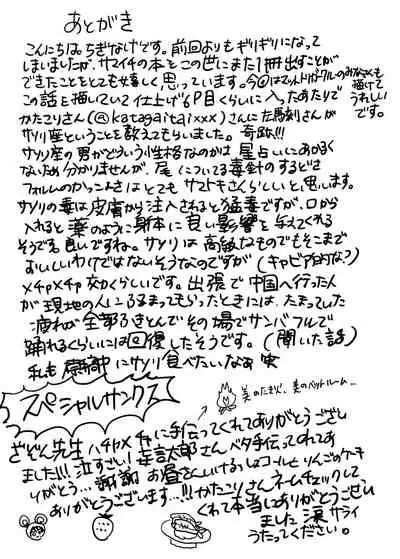 あとがき
こんにちはちぎなげです。前回よりもギリギリになって
しまいましたが、サマイチの本をこの世にまた1冊出すことが
できたことをとても嬉しく思っています。今回はマッドトリガークルーのみなさんも
描けて
うれしい
です。
この話を描いていて仕上げ6P目くらいに入ったあたりで
かたこりさん(@katagaitaixxx)さんに左馬刻さんが
サソリ座ということを教えてもらいました。奇跡!!!
サソリ座の男がどういう性格なのかは星占いにあかるく
ないため分かりませんが、尾についてる毒針のするどさ
フォルムのかっこよさはとてもサマトキさんらしいと思います。
サソリの毒は皮膚から注入されると猛毒ですが、口から
入れると薬のように身体に良い影響を与えてくれる
そうです。良いですね。サソリは高級なものでもそこまで
おいしいわけではないそうなのですが(キャビア的な?)
メチャメチャ効くらしいです。出張で中国へ行った人
が現地の人にふるまってもらったときには、たまっていた
疲れが全部ふきとんでその場でサンバフルで
踊れるくらいには回復したそうです。(聞いた話)
私も にサソリ食べたいなあ 笑
スペシャルサンクス
美のたき火、美のペットルーム…
ざぞん先生 ハチャメチャに手伝ってくれてありがとうござい
ました!!!泣すごい! さんベタ手伝ってくれてあ
りがとう…謝謝 お昼さんいするっしょコールとりんごのケーキ
ありがとうございます…!!!かたこりさんネームチェックして
くれて本当にありがとうござい
ました 涙 サライ
うたってください。